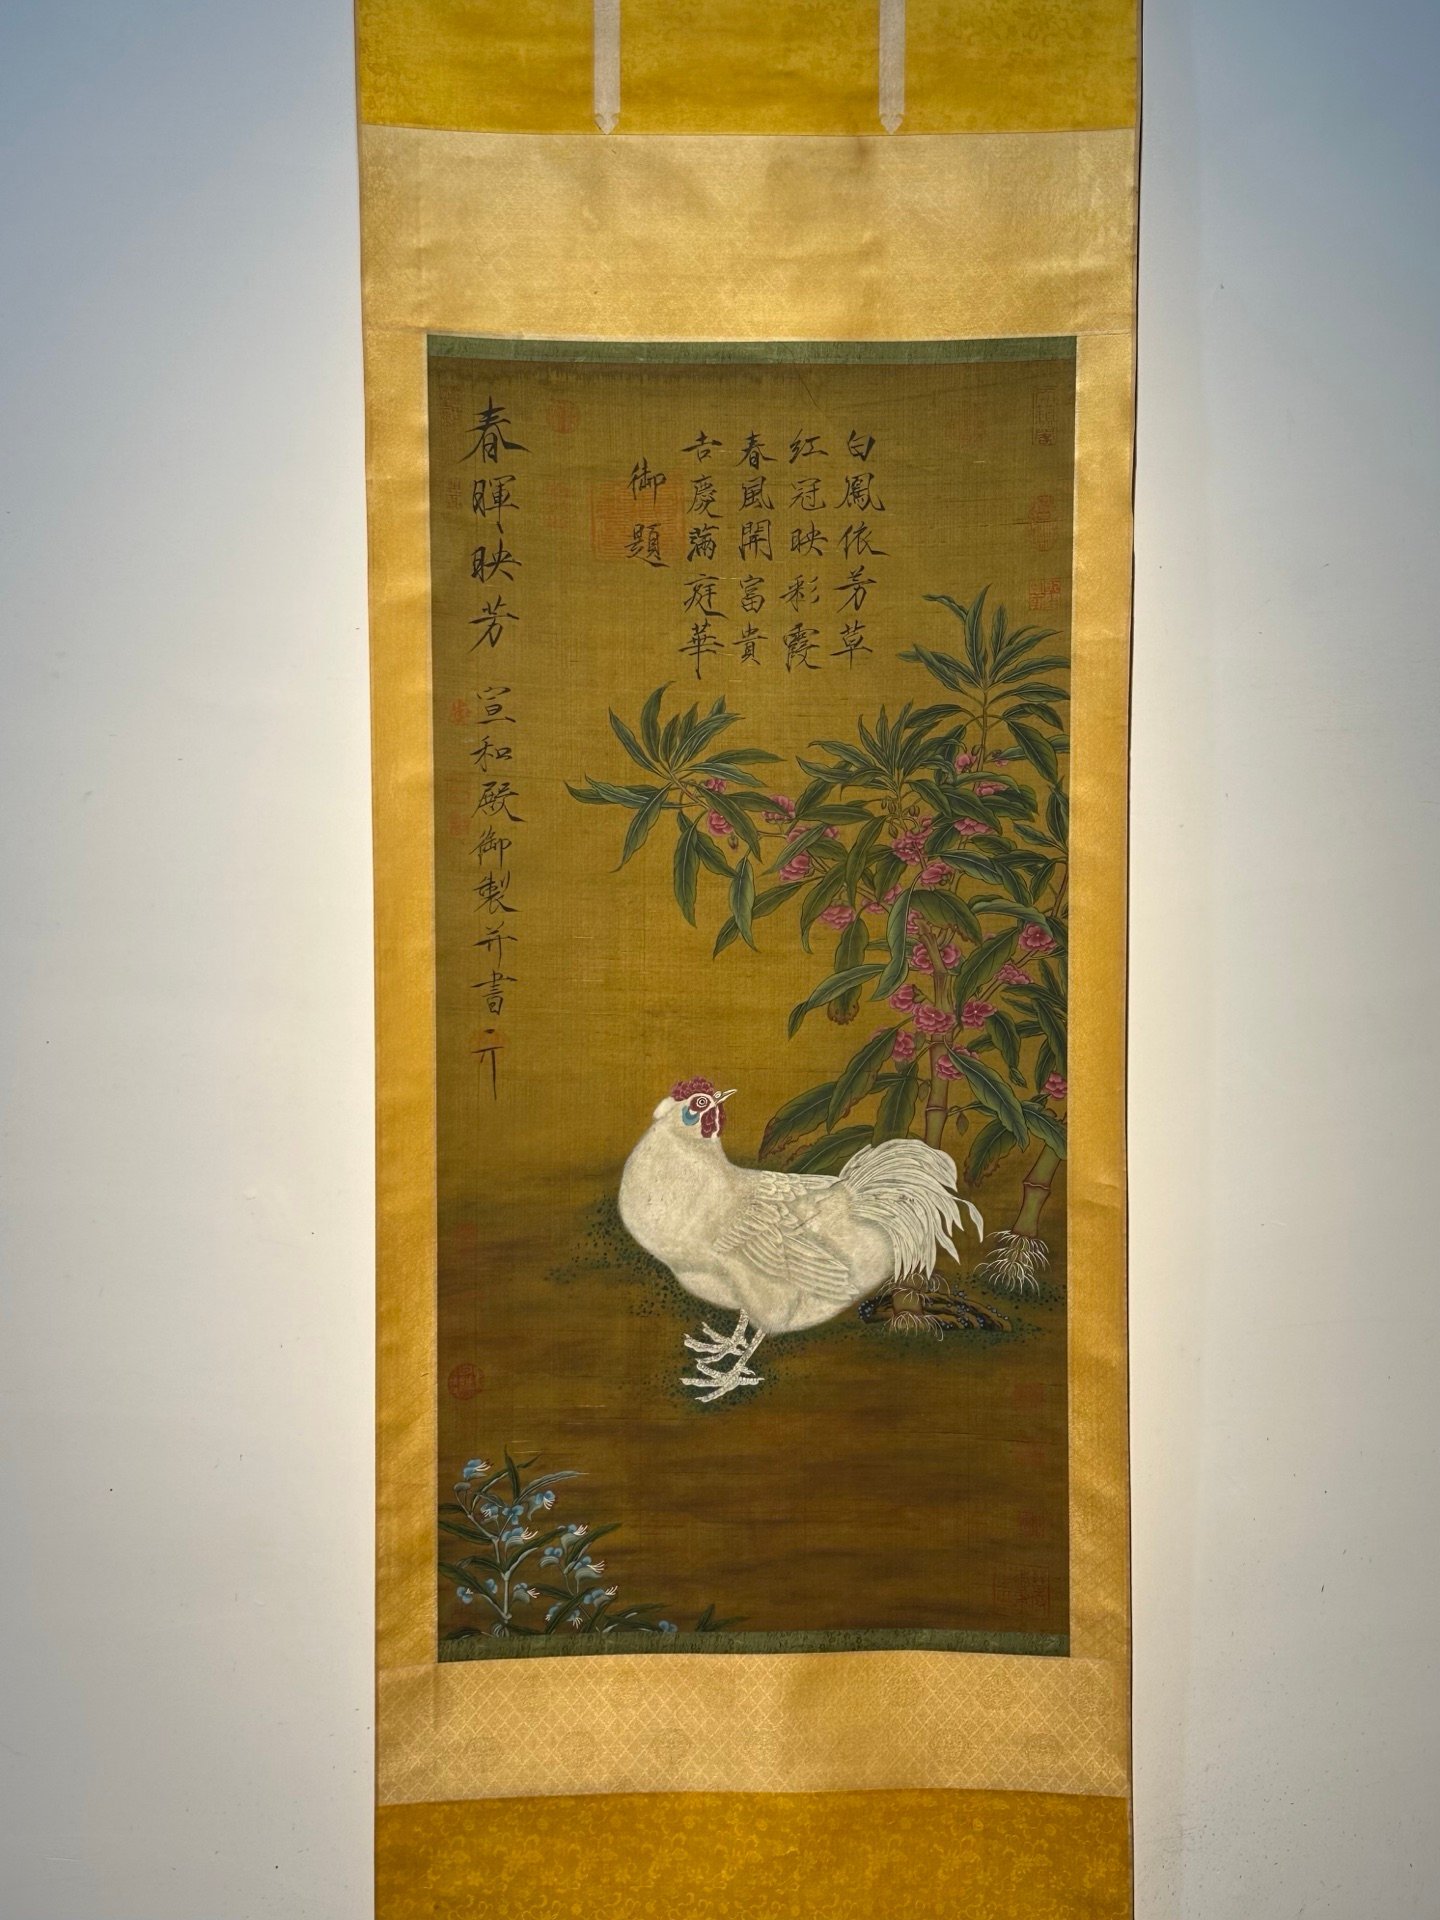 白鳳依芳草
紅冠映彩霞
春風開富貴
吉慶滿庭華
御題
春暉映芳 宣和殿御製并書